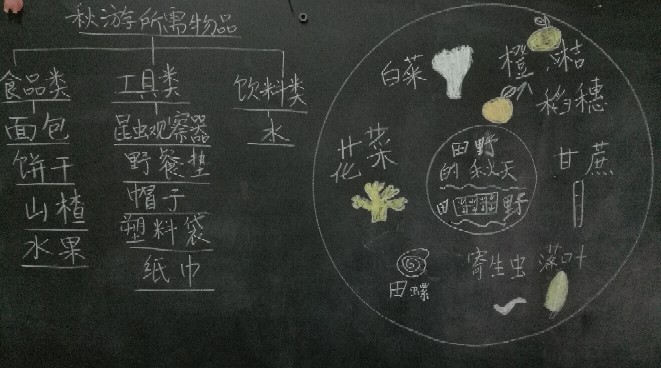 秋游所需物品
食品类
面包
饼干
山楂
水果
工具类
昆虫观察器
野餐垫
帽子
塑料袋
纸巾
饮料类
水
白菜
橙
桔
稻穗
甘蔗
花菜
田野
的秋天
田
野
田螺
寄生虫
落叶